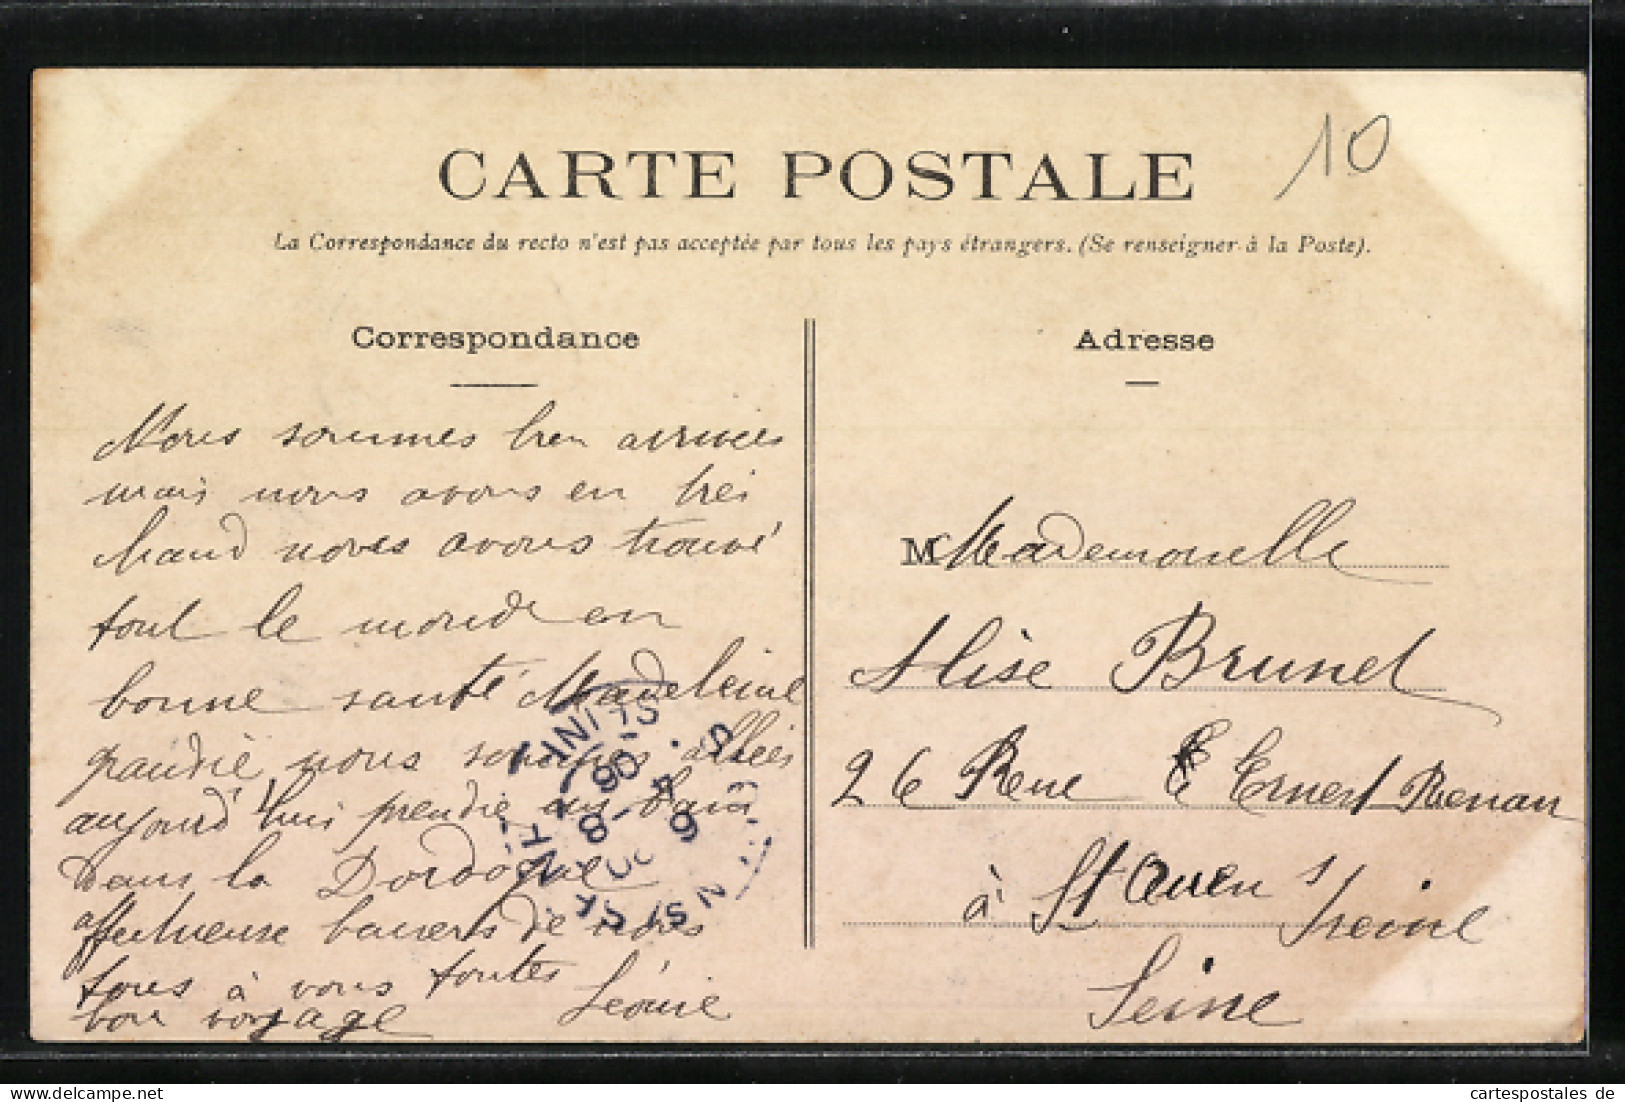 10
CARTE POSTALE
La Correspondance du recto n'est pas acceptée par tous les pays étrangers. (Se renseigner à la Poste).
Correspondance
Nous sommes bien arrivées
mais nous avons eu très
chaud nous avons trouvé
tout le monde en
bonne santé Madeleine
grandie, nous sommes allées
aujourd'hui prendre un bain
dans la Dordogne
affectueuse baisers de nous
tous à vous toutes
bon voyage Léonie
Adresse
M Mademoiselle
Alise Brunet
26 Rue E Ernest Renan
à St Ouen s/ Seine
Seine
8
6
06
cartespostales de